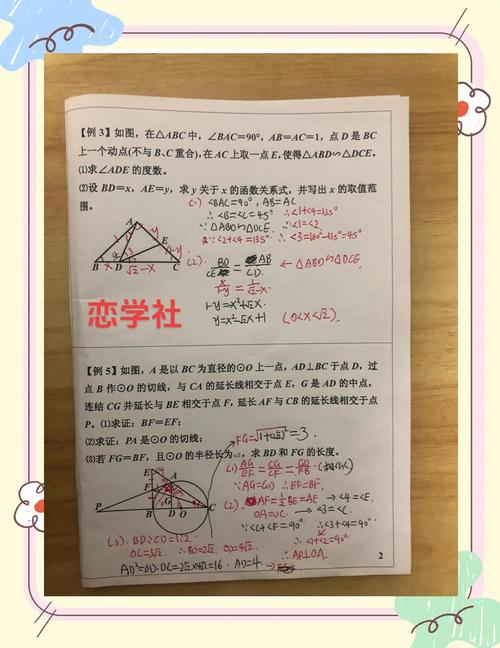 【例 3】如图，在△ABC 中，∠BAC=90°，AB=AC=1，点 D 是 BC
上一个动点(不与 B、C 重合)，在 AC 上取一点 E，使得△ABD∽△DCE。
(1)求∠ADE 的度数。
(2)设 BD=x，AE=y，求 y 关于 x 的函数关系式，并写出 x 的取值范
围。
(1) ∠BAC=90°, AB=AC
∴∠B=∠C=45° ∴∠1+∠4=135°
∵△ABD∽△DCE ∴∠1=∠2
∴∠2+∠4=135° ∴∠3=180°-135°=45°
(2). BD/CE = AB/CD ← △ABD∽△DCE
x/1-y = 1/√2-x
1-y=x²+√2x
y=x²-√2x+1 (0<x<√2)
A
1
E
1-y
B x D √2-x C
恋学社
【例 5】如图，A 是以 BC 为直径的⊙O 上一点，AD⊥BC 于点 D，过
点 B 作⊙O 的切线，与 CA 的延长线相交于点 E，G 是 AD 的中点，
连结 CG 并延长与 BE 相交于点 F，延长 AF 与 CB 的延长线相交于点
P。(1)求证：BF=EF；
(2)求证：PA 是⊙O 的切线；
(3)若 FG=BF，且⊙O 的半径长为 求 BD 和 FG 的长度。
FG=√1+(2√2)²=3.
(1) AG/EF = CG/CF = GD/FB
∵AG=GD ∴EF=BF
(2) AF=½BE=AE → ∠4=∠E
OA=OC → ∠3=∠C
∵∠C+∠E=90° ∴∠3+∠4=90°
∴∠1+∠2=90°
∴AP⊥OA
E
F A
G
P B D O C
(3). BD:DC=1:2
OC=3√2 ∴BD=2√2 CD=4√2
AD²=BD·DC=2√2×4√2=16 AD=4
2